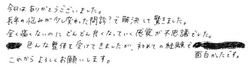 今日はありがとうございました。
長年の悩みが少し変わった問診?で解決して驚きました。
全く痛くないのに、どんどん良くなっていく感覚が不思議でした。
色んな整体を受けてきましたが、初めての経験で
面白かったです。
これからよろしくお願いします。